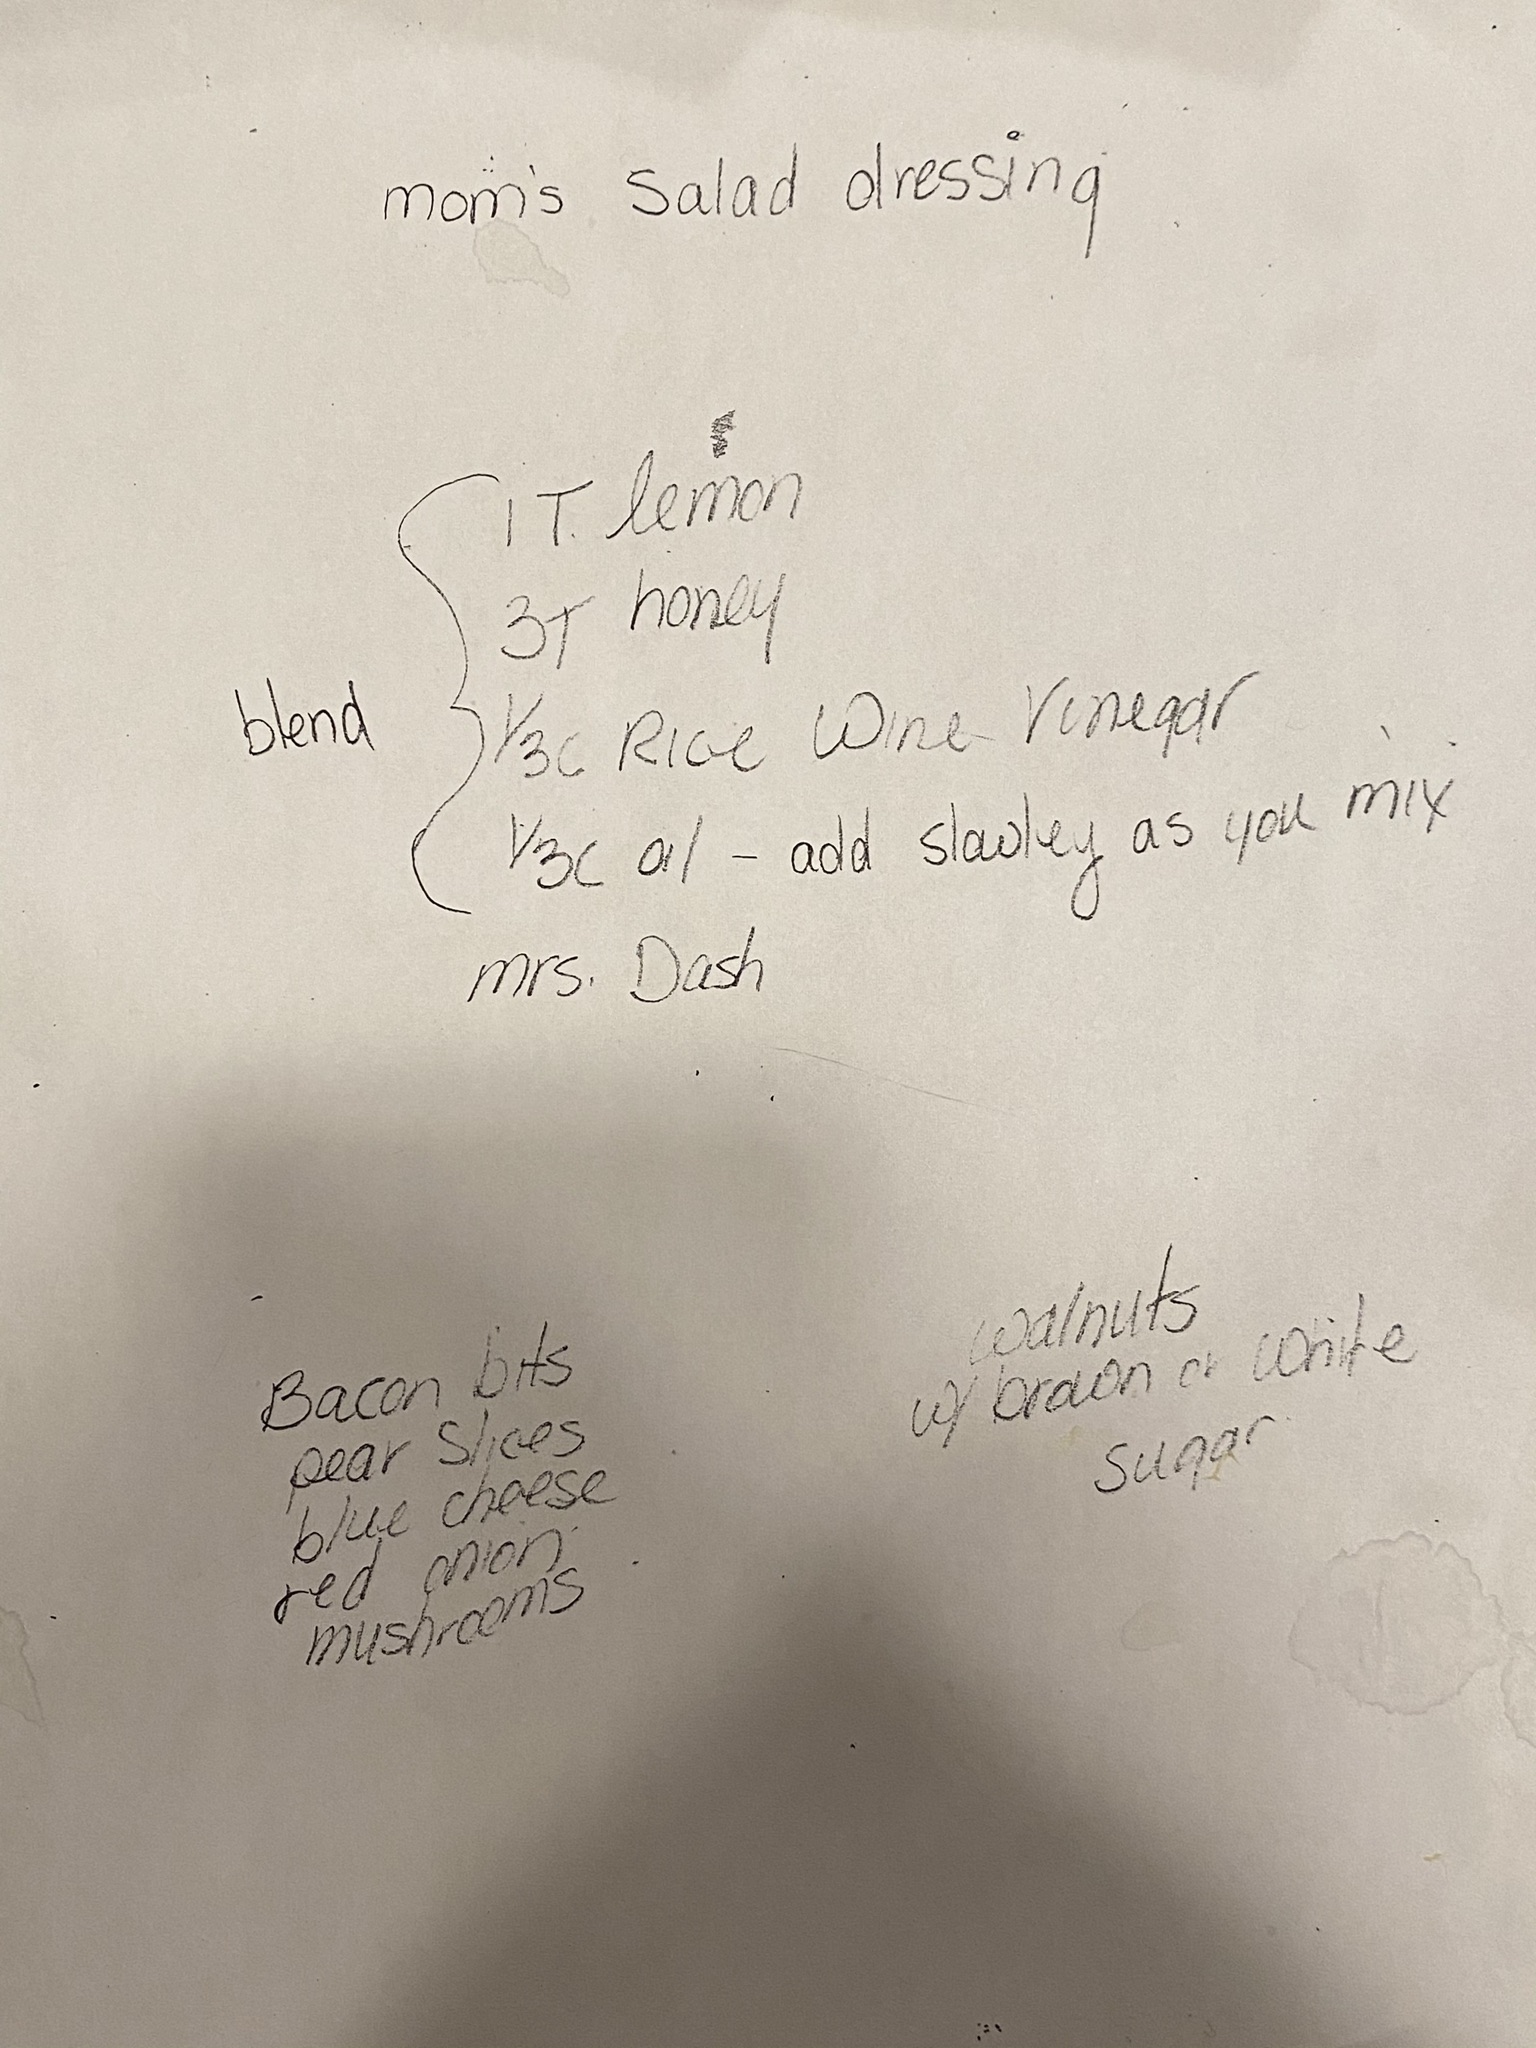 mom's salad dressing
1 T. lemon
3T honey
blend
1/3c Rice Wine Vinegar
1/3c oil - add slowley as you mix
mrs. Dash
Bacon bits
pear slices
blue cheese
red onion
mushrooms
walnuts
w/ brown or white
sugar